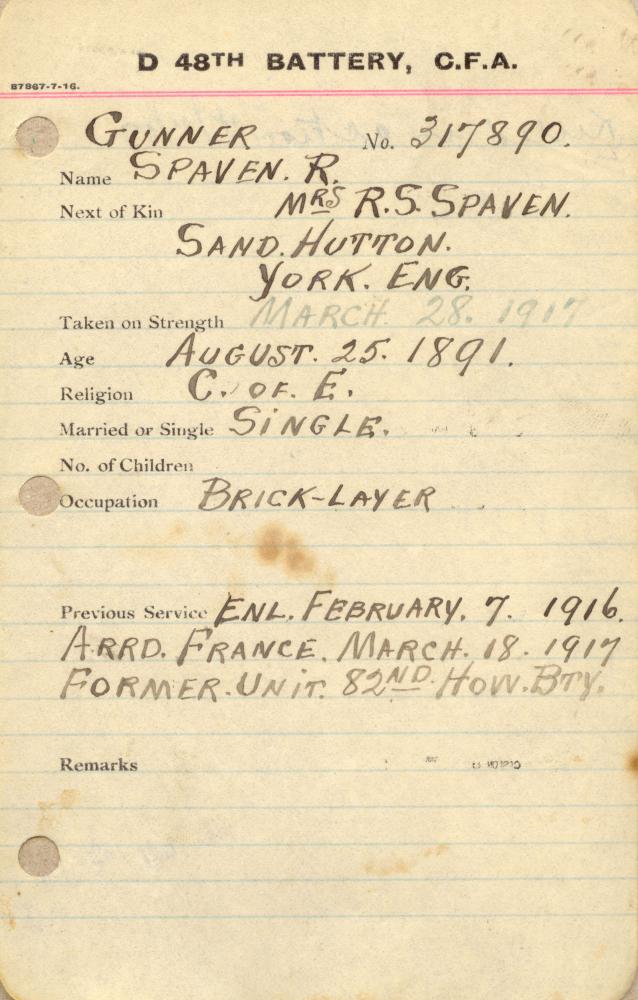 D 48TH BATTERY, C.F.A.
87867-7-16.
GUNNER No. 317890.
Name SPAVEN. R.
Next of Kin MRS R.S. SPAVEN.
SAND. HUTTON.
YORK. ENG.
Taken on Strength MARCH. 28. 1917
Age AUGUST. 25. 1891.
Religion C. OF. E.
Married or Single SINGLE.
No. of Children
Occupation BRICK-LAYER
Previous Service ENL. FEBRUARY. 7. 1916.
ARRD. FRANCE. MARCH. 18. 1917
FORMER. UNIT. 82ND. HOW. BTY.
Remarks